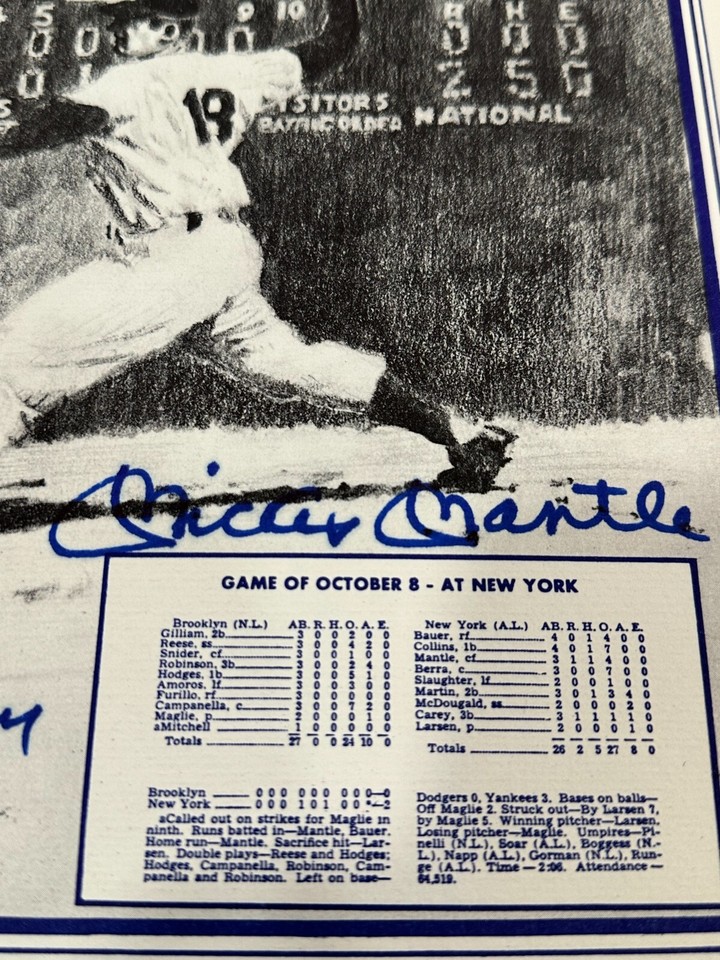 5 9 10 R H E
0 0 0 0 0 0
0 1 2 5 0
18
VISITORS
BATTING ORDER NATIONAL
Mickey Mantle
GAME OF OCTOBER 8 - AT NEW YORK
Brooklyn (N.L.) AB. R. H. O. A. E.
Gilliam, 2b 3 0 0 2 0 0
Reese, ss 3 0 0 4 2 0
Snider, cf 3 0 0 1 0 0
Robinson, 3b 3 0 0 2 4 0
Hodges, 1b 3 0 0 5 1 0
Amoros, lf 3 0 0 3 0 0
Furillo, rf 3 0 0 0 0 0
Campanella, c 3 0 0 7 2 0
Maglie, p 2 0 0 0 1 0
aMitchell 1 0 0 0 0 0
Totals 27 0 0 24 10 0
New York (A.L.) AB. R. H. O. A. E.
Bauer, rf 4 0 1 4 0 0
Collins, 1b 4 0 1 7 0 0
Mantle, cf 3 1 1 4 0 0
Berra, c 3 0 0 7 0 0
Slaughter, lf 2 0 0 1 0 0
Martin, 2b 3 0 1 3 4 0
McDougald, ss 2 0 0 0 2 0
Carey, 3b 3 1 1 1 1 0
Larsen, p 2 0 0 0 1 0
Totals 26 2 5 27 8 0
Brooklyn 0 0 0 0 0 0 0 0 0—0
New York 0 0 0 1 0 1 0 0 *—2
aCalled out on strikes for Maglie in
ninth. Runs batted in—Mantle, Bauer.
Home run—Mantle. Sacrifice hit—Lar-
sen. Double plays—Reese and Hodges;
Hodges, Campanella, Robinson, Cam-
panella and Robinson. Left on base—
Dodgers 0, Yankees 3. Bases on balls—
Off Maglie 2. Struck out—By Larsen 7,
by Maglie 5. Winning pitcher—Larsen.
Losing pitcher—Maglie. Umpires—Pi-
nelli (N.L.), Soar (A.L.), Boggess (N.-
L.), Napp (A.L.), Gorman (N.L.), Run-
ge (A.L.). Time—2:06. Attendance—
64,519.